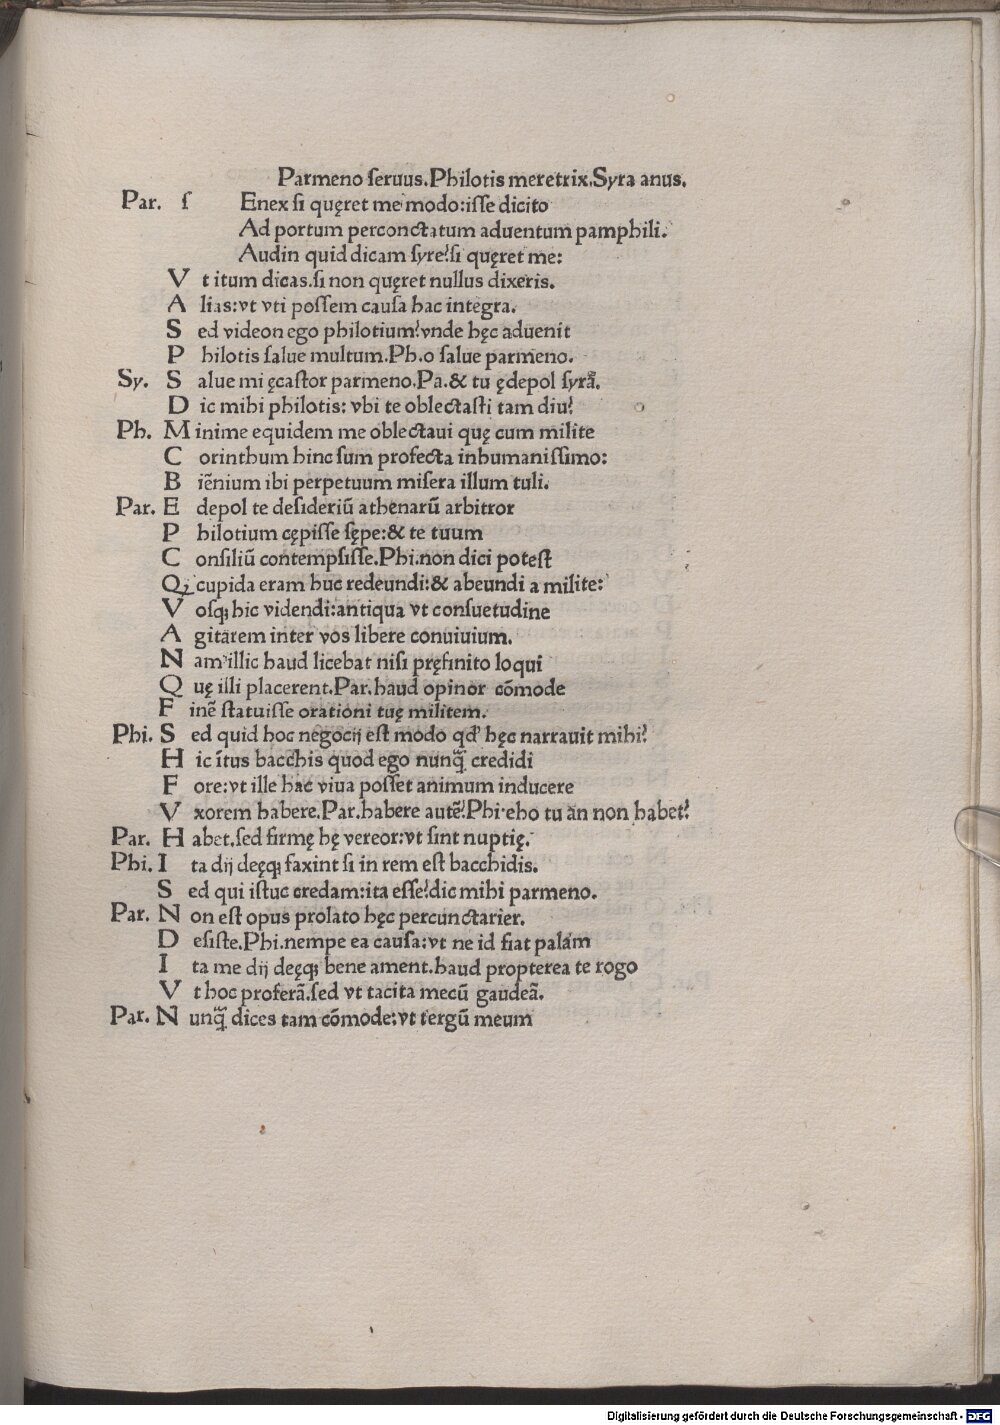 Parmeno ſeruus.Philotis meretrix.Syra anus.
Par. ſ Enex ſi quęret me modo:iſſe dicito
Ad portum perconctatum aduentum pamphili.
Audin quid dicam ſyre?ſi quęret me:
V t itum dicas.ſi non quęret nullus dixeris.
A lias:vt vti poſſem cauſa hac integra.
S ed videon ego philotium?vnde hęc aduenit
P hilotis ſalue multum.Ph.o ſalue parmeno.
Sy. S alue mi ęcaſtor parmeno.Pa.& tu ędepol ſyra᷑.
D ic mihi philotis: vbi te oblectaſti tam diu?
Ph. M inime equidem me oblectaui quę cum milite
C orinthum hinc ſum profecta inhumaniſſimo:
B iēnium ibi perpetuum miſera illum tuli.
Par. E depol te deſideriū athenarū arbitror
P hilotium cępiſſe ſępe:& te tuum
C onſiliū contempſiſſe.Phi.non dici poteſt
Qꝫ cupida eram huc redeundi:& abeundi a milite:
V oſqꝫ hic videndi:antiqua vt conſuetudine
A gitarem inter vos libere conuiuium.
N am illic haud licebat niſi pręfinito loqui
Q uę illi placerent.Par.haud opinor cōmode
F inē ſtatuiſſe orationi tuę militem.
Phi. S ed quid hoc negocij eſt modo qd' hęc narrauit mihi?
H ic ītus bacchis quod ego nunꝗ̃ credidi
F ore:vt ille hac viua poſſet animum inducere
V xorem habere.Par.habere autē?Phi.eho tu an non habet?
Par. H abet.ſed firmę hę vereor:vt ſint nuptię.
Phi. I ta dij deęqꝫ faxint ſi in rem eſt bacchidis.
S ed qui iſtuc credam:ita eſſe?dic mihi parmeno.
Par. N on eſt opus prolato hęc percunctarier.
D eſiſte.Phi.nempe ea cauſa:vt ne id fiat palám
I ta me dij deęqꝫ bene ament.haud propterea te rogo
V t hoc proferā.ſed vt tacita mecū gaudeā.
Par. N unꝗ̃ dices tam cōmode:vt tergū meum
Digitalisierung gefördert durch die Deutsche Forschungsgemeinschaft - DFG